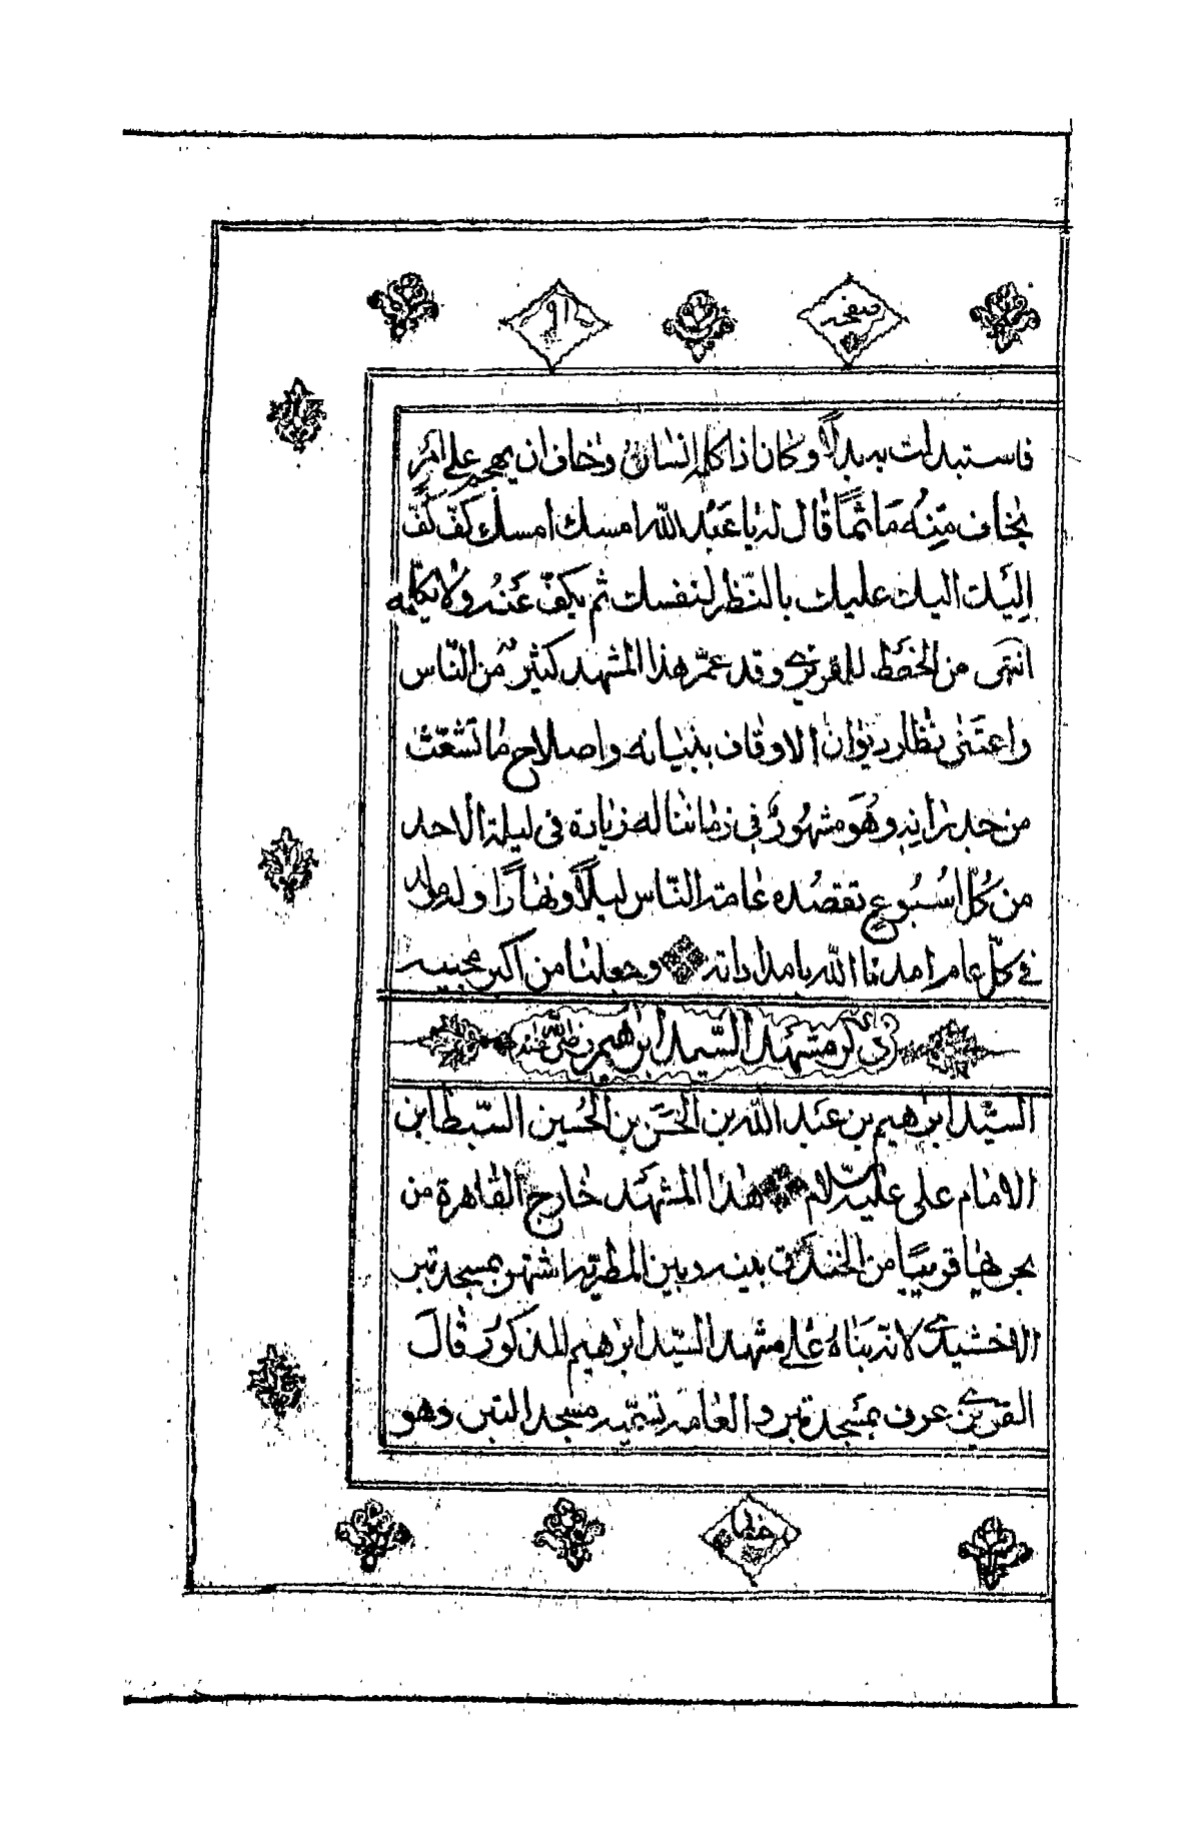 صفحه
فاستبدلت به بدلاً وكان اذا كلمه انسانٌ وخاف ان يهجم على امر
يخاف مِنه مَاثمًا قال له يا عَبْد الله امسك امسك كَفّ كَفّ
اِليَك اليك عليك بالنّظر لنفسك ثم يكفّ عَنه ولا يكلّمه
انتهى من الخطَط للمقريزي وقد عمّر هذا المشهد كثير من النّاس
واعتَنى نظار ديوان الاوقاف ببنيانه واصلاح ما تشعّث
من جدرانه وهُو مشهورٌ في زماننا له زيارة في ليلة الاحد
من كُلّ اسُبُوع تقصُده عامة النّاس ليلًا ونهارًا وله مولد
في كلّ عام امدنا الله بامداداته وجعلنا من اكبر محبيه
ذكر مشهد السّيد ابراهيم رضي الله عنه
السيّد ابرهيم بن عَبد الله بن الحسَن بن الحُسين السّبط ابن
الامام على عليه السّلام هذا المشهَد خارج القاهرة من
بحريها قريبًا من الخندق بينه وبين المطرية اشتهر بمسجد تبر
الاخشيدي لانه بناه على مشهد السيّد ابرهيم المذكور قال
المقريزي عرف بمسَجد تبر والعامة تسمّيه مسجد التبن وهو